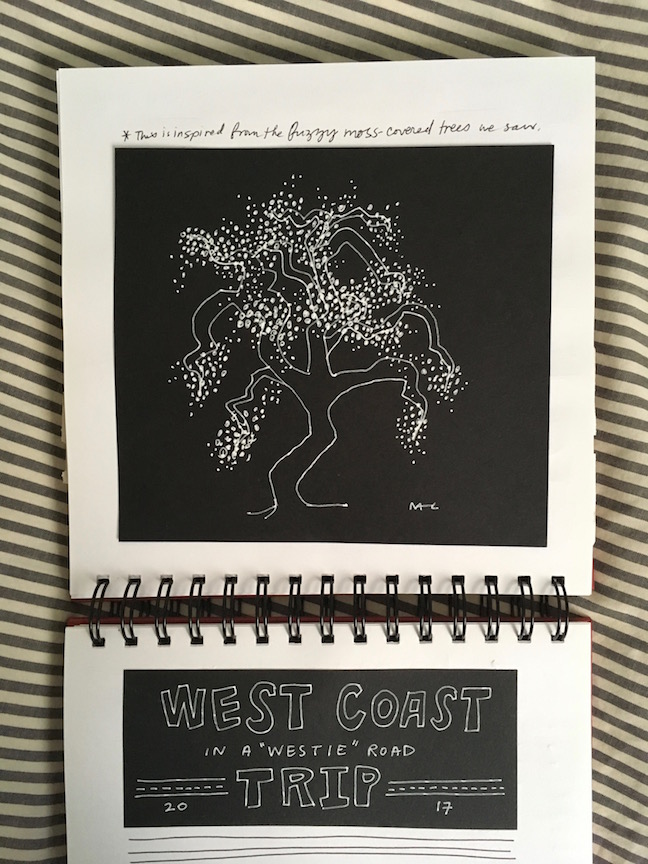 * This is inspired from the fuzzy moss-covered trees we saw.
WEST COAST
IN A "WESTIE" ROAD
TRIP
20 17